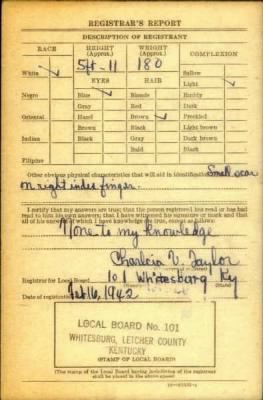 REGISTRAR'S REPORT
DESCRIPTION OF REGISTRANT
RACE HEIGHT (Approx.) WEIGHT (Approx.) COMPLEXION
5ft-11 180 Sallow
White ✓ EYES HAIR Light ✓
Negro Blue ✓ Blonde Ruddy
Gray Red Dark
Oriental Hazel Brown ✓ Freckled
Brown Black Light brown
Indian Black Gray Dark brown
Bald Black
Filipino
Other obvious physical characteristics that will aid in identification Small scar
on right index finger.
I certify that my answers are true; that the person registered has read or has had
read to him his own answers; that I have witnessed his signature or mark and that
all of his answers of which I have knowledge are true, except as follows:
None to my knowledge
V. Taylor
Registrar for Local Board 101 Whitesburg Ky
Date of registration Feb 16, 1942
LOCAL BOARD No. 101
WHITESBURG, LETCHER COUNTY
KENTUCKY
(STAMP OF LOCAL BOARD)
(The stamp of the Local Board having jurisdiction of the registrant
shall be placed in the above space)